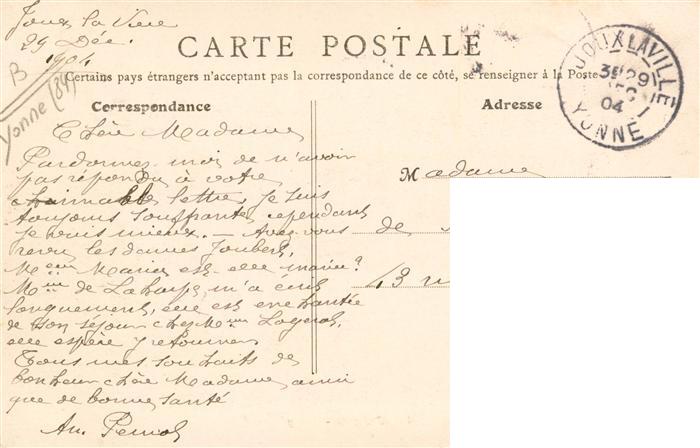 Joux la Ville
29 Déc.
1904
B
Yonne (89)
CARTE POSTALE
Certains pays étrangers n'acceptent pas la correspondance de ce côté, se renseigner à la Poste
JOUX LA VILLE
3E 29
DEC
04
YONNE
Correspondance
Adresse
Chère Madame
Pardonnez-moi de n'avoir
pas répondu à votre
aimable lettre, je suis
toujours souffrante, cependant
je vais mieux. — Avez-vous
revu les dames Joubert,
Melle Maria est-elle mariée?
Mme de Laharpe m'a écrit
longuement, elle est enchantée
de son séjour chez Mme
elle espère y retourner
Tous mes souhaits de
bonheur chère Madame ainsi
que de bonne santé
Madame
de
43